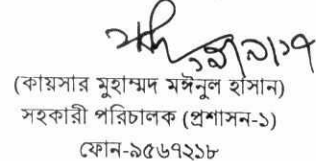 (কায়সার মুহাম্মদ মঈনুল হাসান)
সহকারী পরিচালক (প্রশাসন-১)
ফোন-৯৫৬৭২১৮